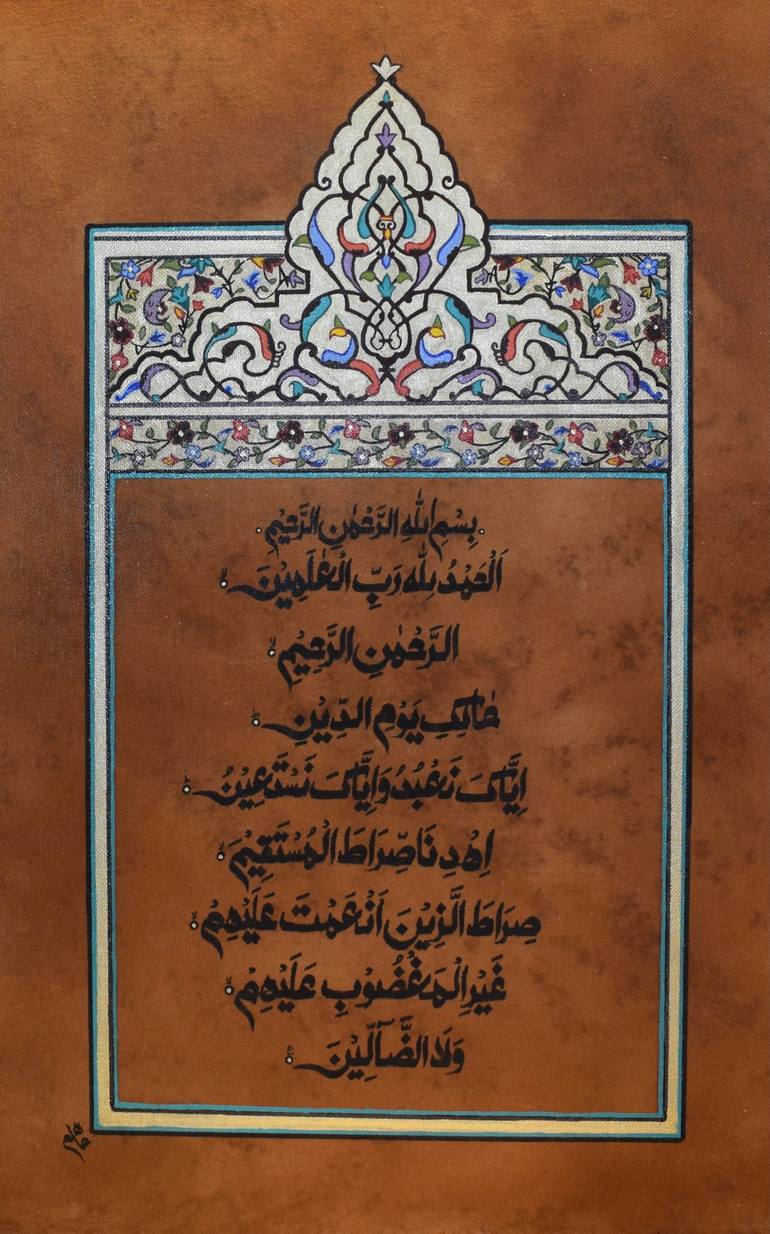 بِسْمِ اللهِ الرَّحْمٰنِ الرَّحِيْمِ
اَلْحَمْدُ لِلّٰهِ رَبِّ الْعٰلَمِيْنَ
الرَّحْمٰنِ الرَّحِيْمِ
مٰالِكِ يَوْمِ الدِّيْنِ
اِيَّاكَ نَعْبُدُ وَاِيَّاكَ نَسْتَعِيْنُ
اِهْدِنَا صِّرَاطَ الْمُسْتَقِيْمَ
صِرَاطَ الَّزِيْنَ اَنْعَمْتَ عَلَيْهِمْ
غَيْرِ الْمَغْضُوْبِ عَلَيْهِمْ
وَلَا الضَّآلِّيْنَ